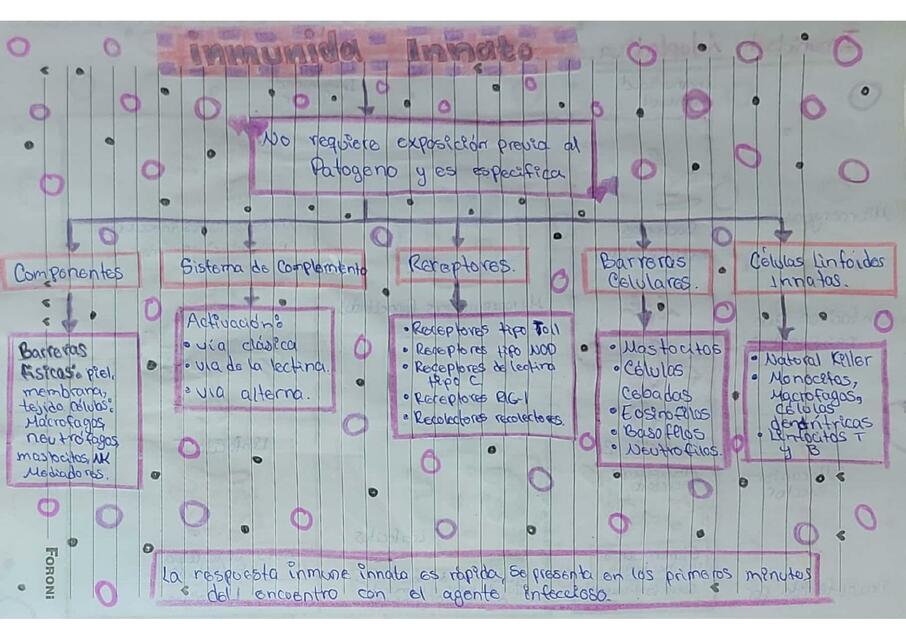 inmunida Innato
No requiere exposición previa al
Patogeno y es especifica
Componentes
Barreras
fisicas: piel,
membrana,
tejido células:
Macrofagos,
neutrofagos,
mastocitos, NK
Mediadores.
Sistema de Complemento
Activación:
• via clásica
• via de la lectina.
• via alterna.
Receptores.
• Receptores tipo Toll
• Receptores tipo NOD
• Receptores de lectina
tipo C
• Receptores RIG-1
• Recolectores recolectores.
Barreras
Celulares.
• Mastocitos
• Células
Cebadas
• Eosinofilos
• Basofilos
• Neutrofilos.
Células Linfoides
Innatas.
• Natural Killer
• Monocitos,
Macrofagos,
Células
dendritricas
• Linfocitos T
y B
La respuesta inmune innata es rápida, se presenta en los primeros minutos
del encuentro con el agente infeccioso.
FORONI